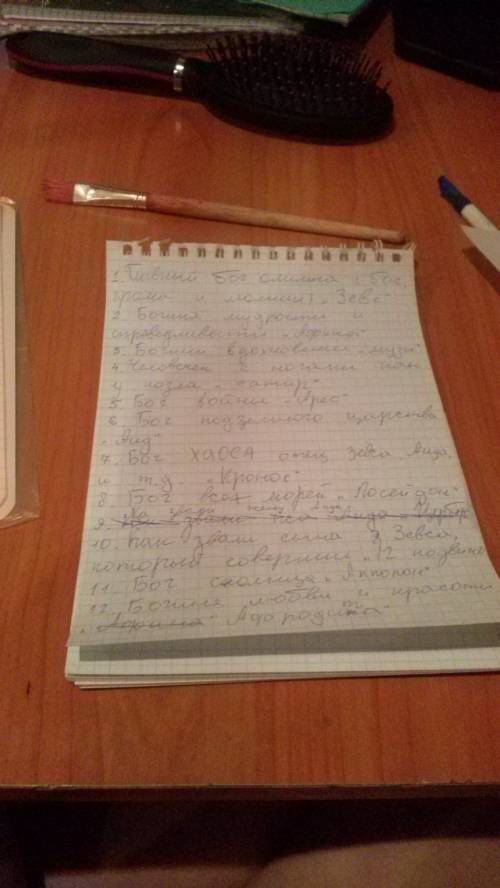 1. Главный Бог олимпа (Бог
грома и молнии) „Зевс"
2. Богиня мудрости и
справедливости „Афина"
3. Богини вдохновения „музы"
4. Человечек с ногами как
у козла „сатир"
5. Бог войны „Арес"
6. Бог подземного царства
„Аид"
7. Бог ХАОСА отец Зевса, Аида,
и т.д. „Кронос"
8. Бог всех морей „Посейдон"
звали жену Аида
9. Как звали пса Аида „Цербер
10. Как звали сына Зевса,
который совершил „12 подвигов
11. Бог солнца „Апполон"
12. Богиня любви и красоты
„Афродита"